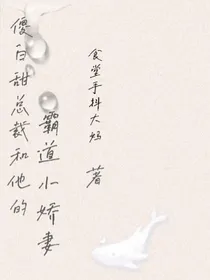 傻白甜总裁和他的
霸道小娇妻
食堂手抖大妈 著